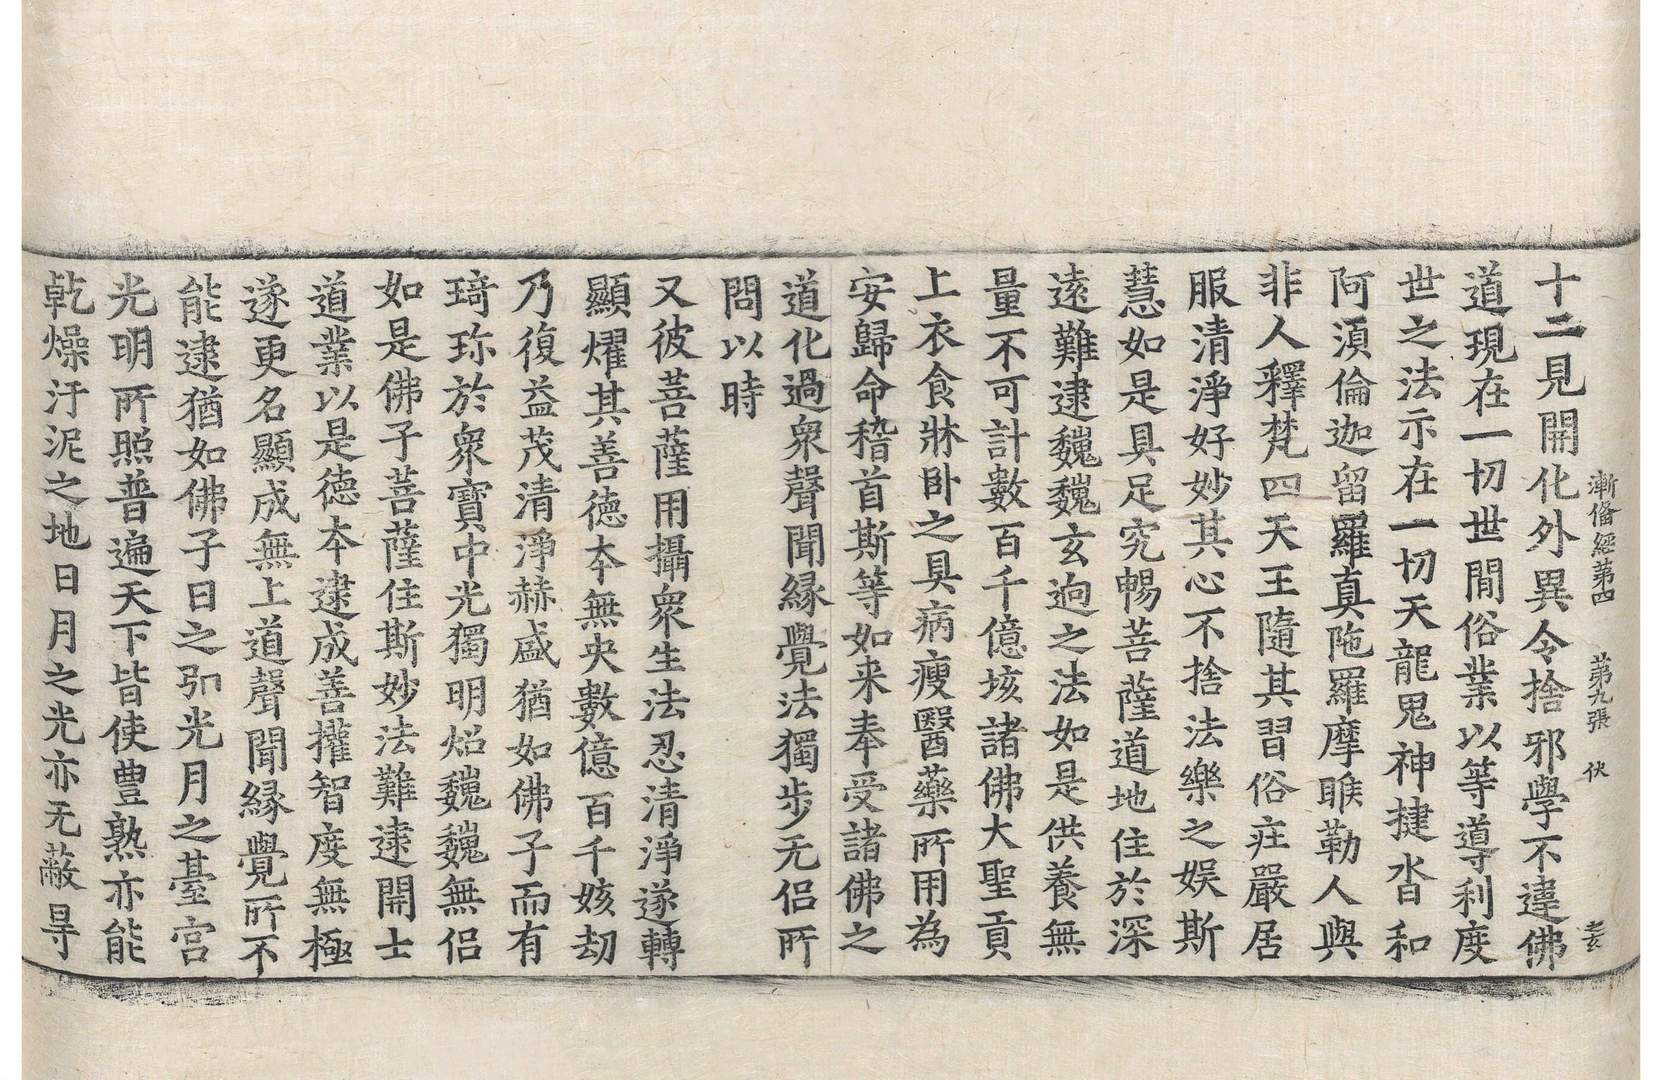 漸俻經第四 第九張 伏
十二見開化外異令捨邪學不違佛
道現在一切世間俗業以等導利度
世之法示在一切天龍鬼神揵沓和
阿湏倫迦留羅真陁羅摩睺勒人與
非人釋梵四天王隨其習俗庄嚴居
服清淨好妙其心不捨法樂之娱斯
慧如是具足究暢菩薩道地住於深
遠難逮巍巍玄逈之法如是供養無
量不可計數百千億垓諸佛大聖貢
上衣食牀卧之具病瘦醫藥所用為
安歸命稽首斯等如来奉受諸佛之
道化過衆聲聞縁覺法獨步无侣所
問以時
又彼菩薩用攝衆生法忍清淨遂轉
顯燿其善德夲無央數億百千姟劫
乃復益茂清淨赫盛猶如佛子而有
琦珎於衆寶中光獨明炤巍巍無侣
如是佛子菩薩住斯妙法難逮開士
道業以是德夲逮成善權智度無極
遂更名顯成無上道聲聞縁覺所不
能逮猶如佛子日之形光月之臺宫
光明所照普遍天下皆使豊熟亦能
乾燥汙泥之地日月之光亦无蔽㝵